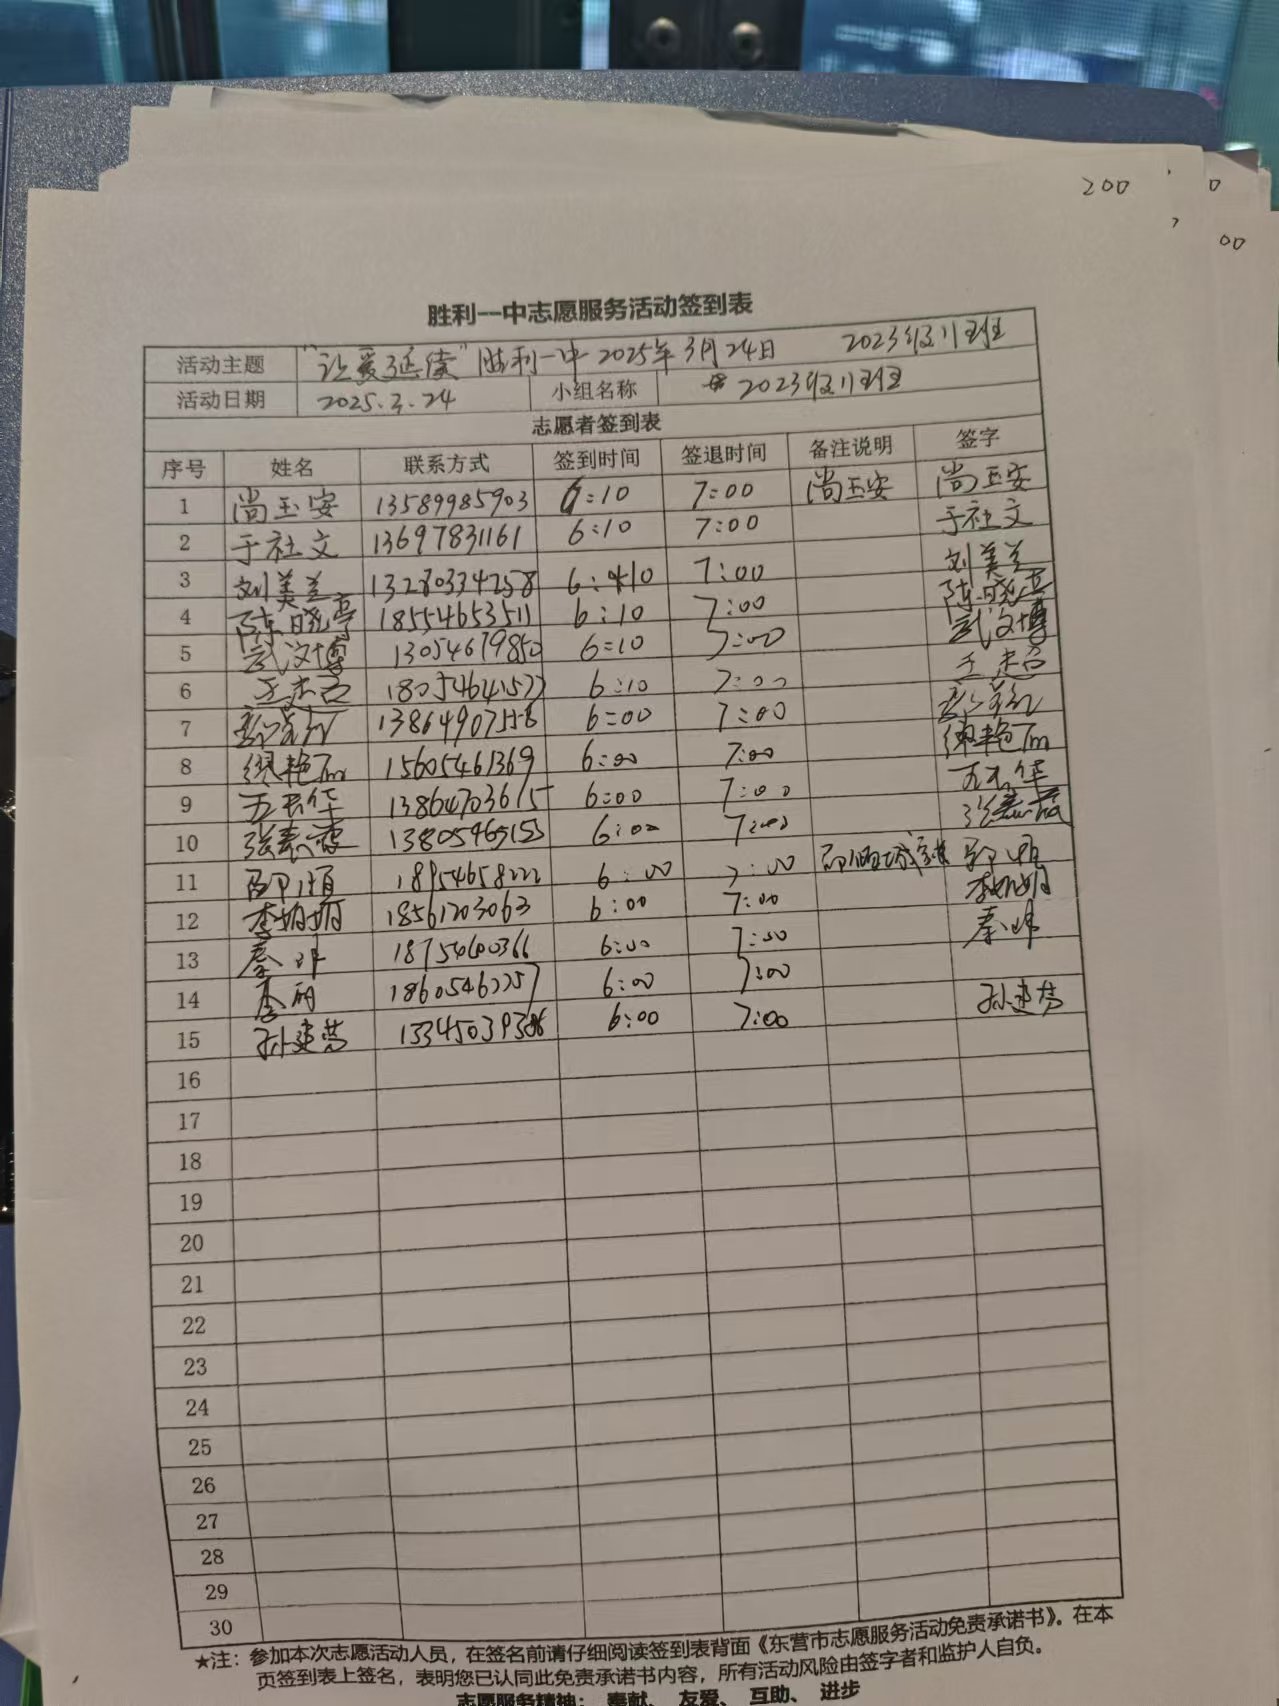 200
0
00
胜利一中志愿服务活动签到表
活动主题 "让爱延续"胜利一中2025年3月24日 2023级11班
活动日期 2025.3.24 小组名称 2023级11班
志愿者签到表
序号 姓名 联系方式 签到时间 签退时间 备注说明 签字
1 尚玉安 13589985903 6:10 7:00 尚玉安 尚玉安
2 于社文 13697831161 6:10 7:00 于社文
3 刘美兰 13280334258 6:10 7:00 刘美兰
4 陈晓亭 18554653511 6:10 7:00 陈晓亭
5 武汶博 13054679850 6:10 7:00 武汶博
6 6:10 7:00
7 13864907558 6:00 7:00
8 15605461369 6:00 7:00
9 13864703615 6:00 7:00
10 6:00 7:00
11 18954658222 6:00 7:00
12 李娟娟 18561203063 6:00 7:00 李娟娟
13 18754600366 6:00 7:00
14 李丽 18605462257 6:00 7:00
15 孙建营 6:00 7:00 孙建营
16
17
18
19
20
21
22
23
24
25
26
27
28
29
30
★注：参加本次志愿活动人员，在签名前请仔细阅读签到表背面《东营市志愿服务活动免责承诺书》。在本
页签到表上签名，表明您已认同此免责承诺书内容，所有活动风险由签字者和监护人自负。
志愿服务精神：奉献、友爱、互助、进步